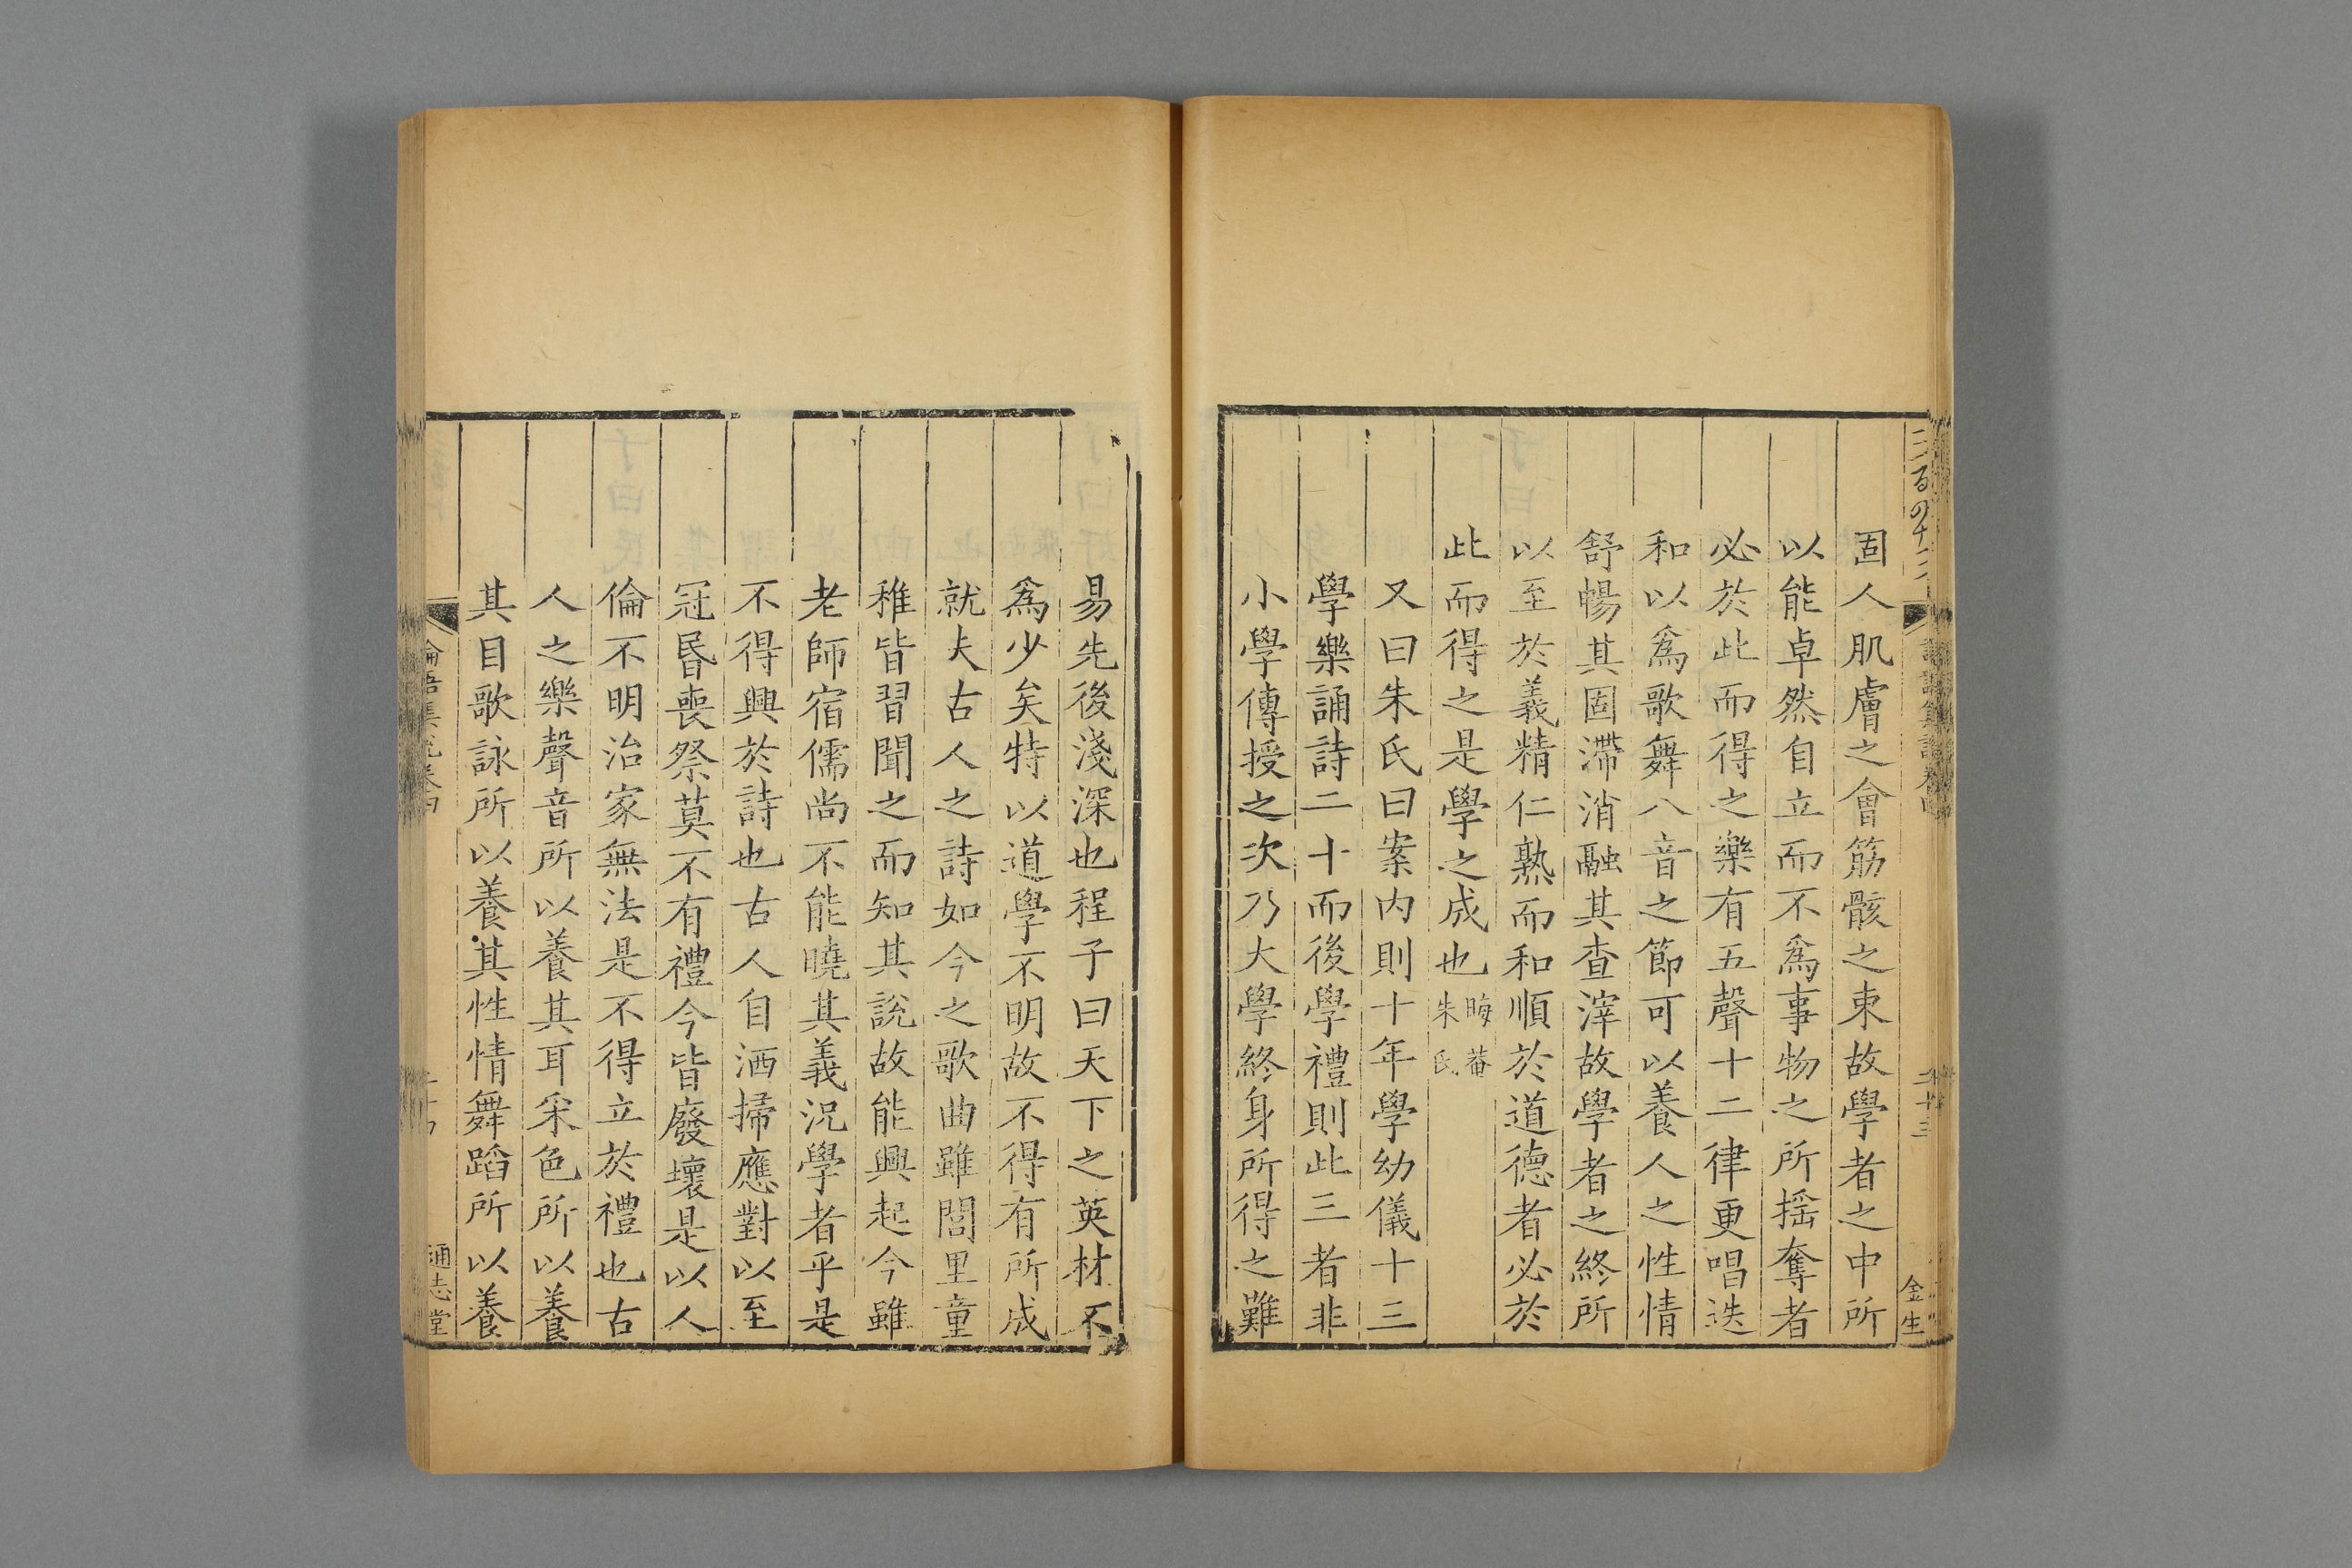 固人肌膚之會筋骸之束故學者之中所
以能卓然自立而不爲事物之所揺奪者
必於此而得之樂有五聲十二律更唱迭
和以爲歌舞八音之節可以養人之性情
舒暢其固滯消融其查滓故學者之終所
以至於義精仁熟而和順於道德者必於
此而得之是學之成也晦菴朱氏
又曰朱氏曰案内則十年學幼儀十三
學樂誦詩二十而後學禮則此三者非
小學傳授之次乃大學終身所得之難
金生
易先後淺深也程子曰天下之英材不
爲少矣特以道學不明故不得有所成
就夫古人之詩如今之歌曲雖閭里童
稚皆習聞之而知其說故能興起今雖
老師宿儒尚不能曉其義況學者乎是
不得興於詩也古人自洒掃應對以至
冠昬喪祭莫不有禮今皆廢壞是以人
倫不明治家無法是不得立於禮也古
人之樂聲音所以養其耳采色所以養
其目歌詠所以養其性情舞蹈所以養
論語集說卷四
通志堂